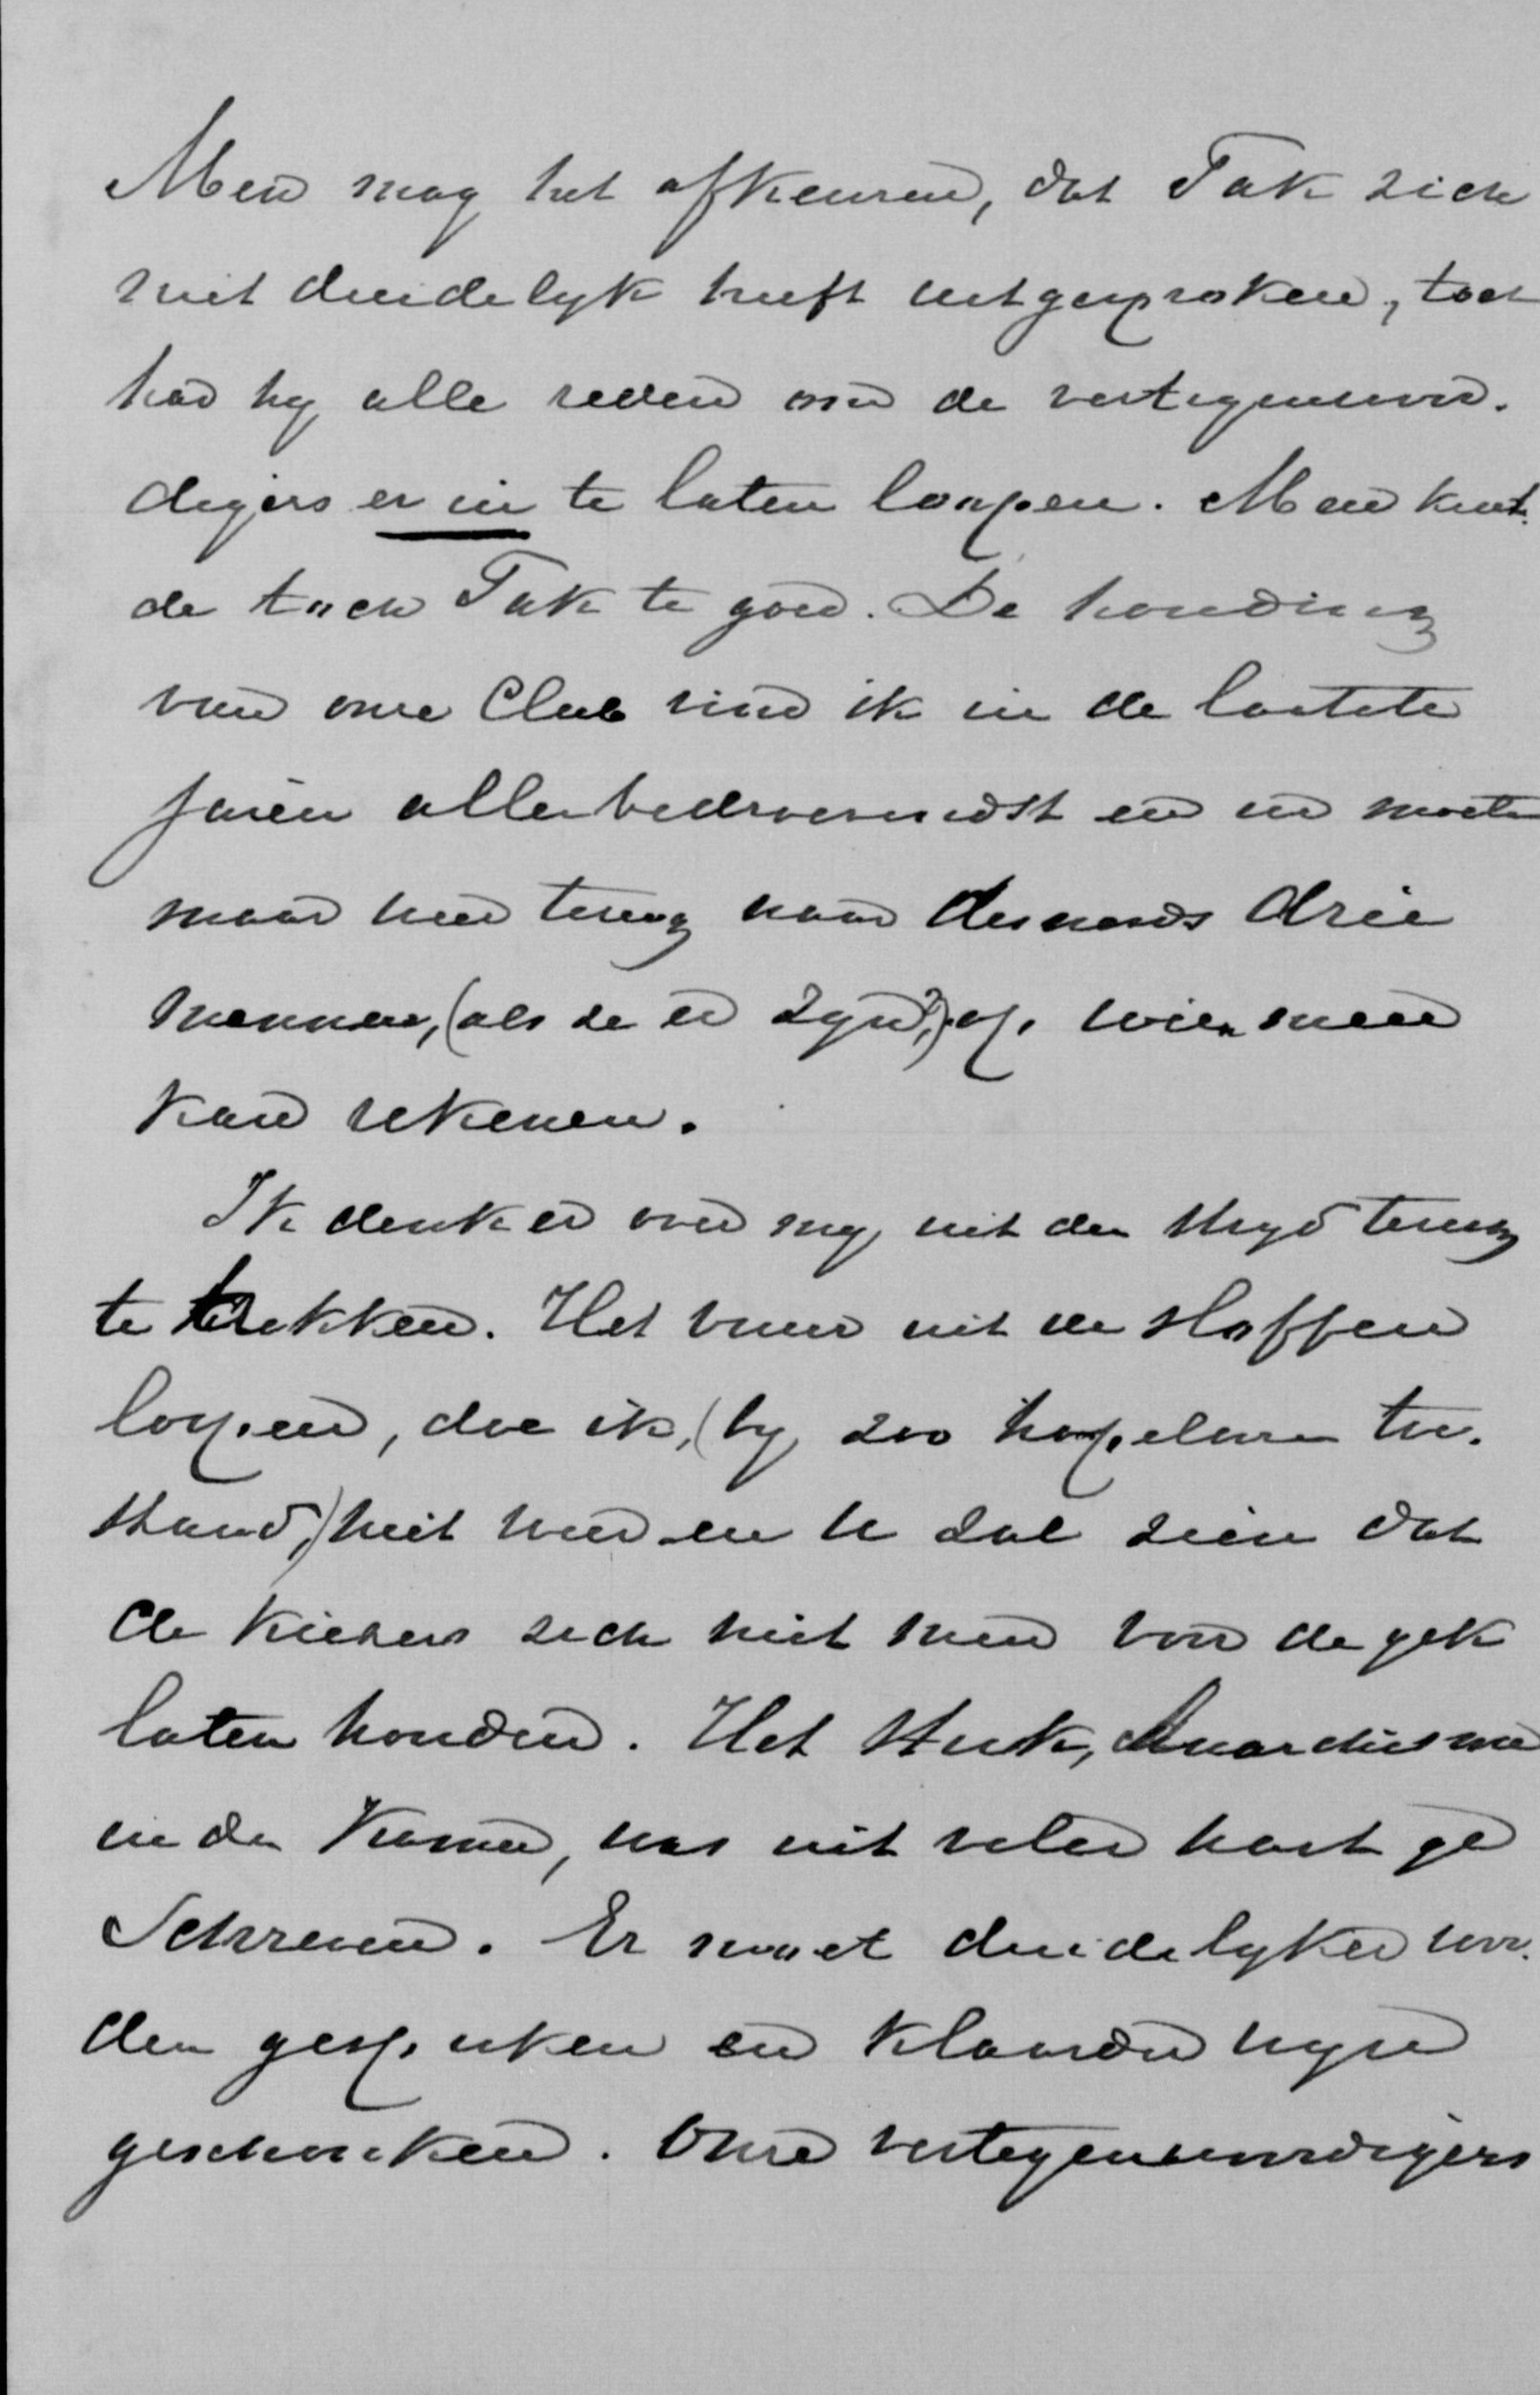 Men mag het afkeuren, dat Tak zich
niet duidelyk heeft uitgesproken, toch
had hy alle reden om de vertegenwoor-
digers er in te laten loopen. Men kent
de toch Tak te goed. De houding
van onze Club vind ik in de laatste
jaren allerbedroevendst en we moeten
maar weer terug naar desnoods drie
mannen, (als ze er zyn?), op wien men
kan rekenen.
Ik denk er over my uit den stryd terug
te trekken. Het vuur uit de sloffen
loopen, doe ik, (by zoo hopelozen toe-
stand,) niet meer en U zal zien dat
de kiezers zich niet meer voor de gek
laten houden. Het stuk, Anarchisme
in de Kamer, was uit veler hart ge
schreven. Er moet duidelyker wor-
den gesproken en klaarder wyn
geschonken. Onze vertegenwoordigers